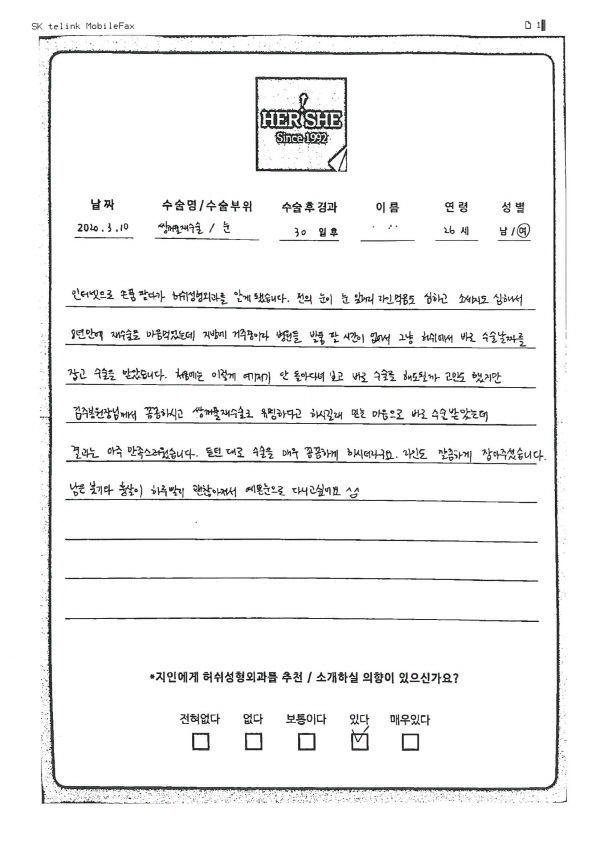 SK telink MobileFax
1
HER SHE
Since 1992
날짜 수술명/수술부위 수술후경과 이름 연령 성별
2020.3.10 쌍꺼풀재수술 / 눈 30 일후 26 세 남/여
인터넷으로 손품 팔다가 허쉬성형외과를 알게 됐습니다. 전의 눈이 눈 앞머리 라인먹음도 심하고 소세지도 심해서
8년만에 재수술을 마음먹었는데 지방에 거주중이라 병원들 발품 팔 시간이 없어서 그냥 허쉬에서 바로 수술날짜를
잡고 수술을 받았습니다. 처음에는 이렇게 여기저기 안 돌아다녀 보고 바로 수술을 해도될까 고민도 했지만
원장님께서 꼼꼼하시고 쌍꺼풀재수술로 유명하다고 하시길래 믿는 마음으로 바로 수술받았는데
결과는 아주 만족스러웠습니다. 듣던 대로 수술을 매우 꼼꼼하게 하시더라구요. 라인도 깔끔하게 잡아주셨습니다.
남은 붓기와 흉살이 하루빨리 괜찮아져서 예쁜눈으로 다니고싶네요 ^^
*지인에게 허쉬성형외과를 추천 / 소개하실 의향이 있으신가요?
전혀없다 없다 보통이다 있다 매우있다